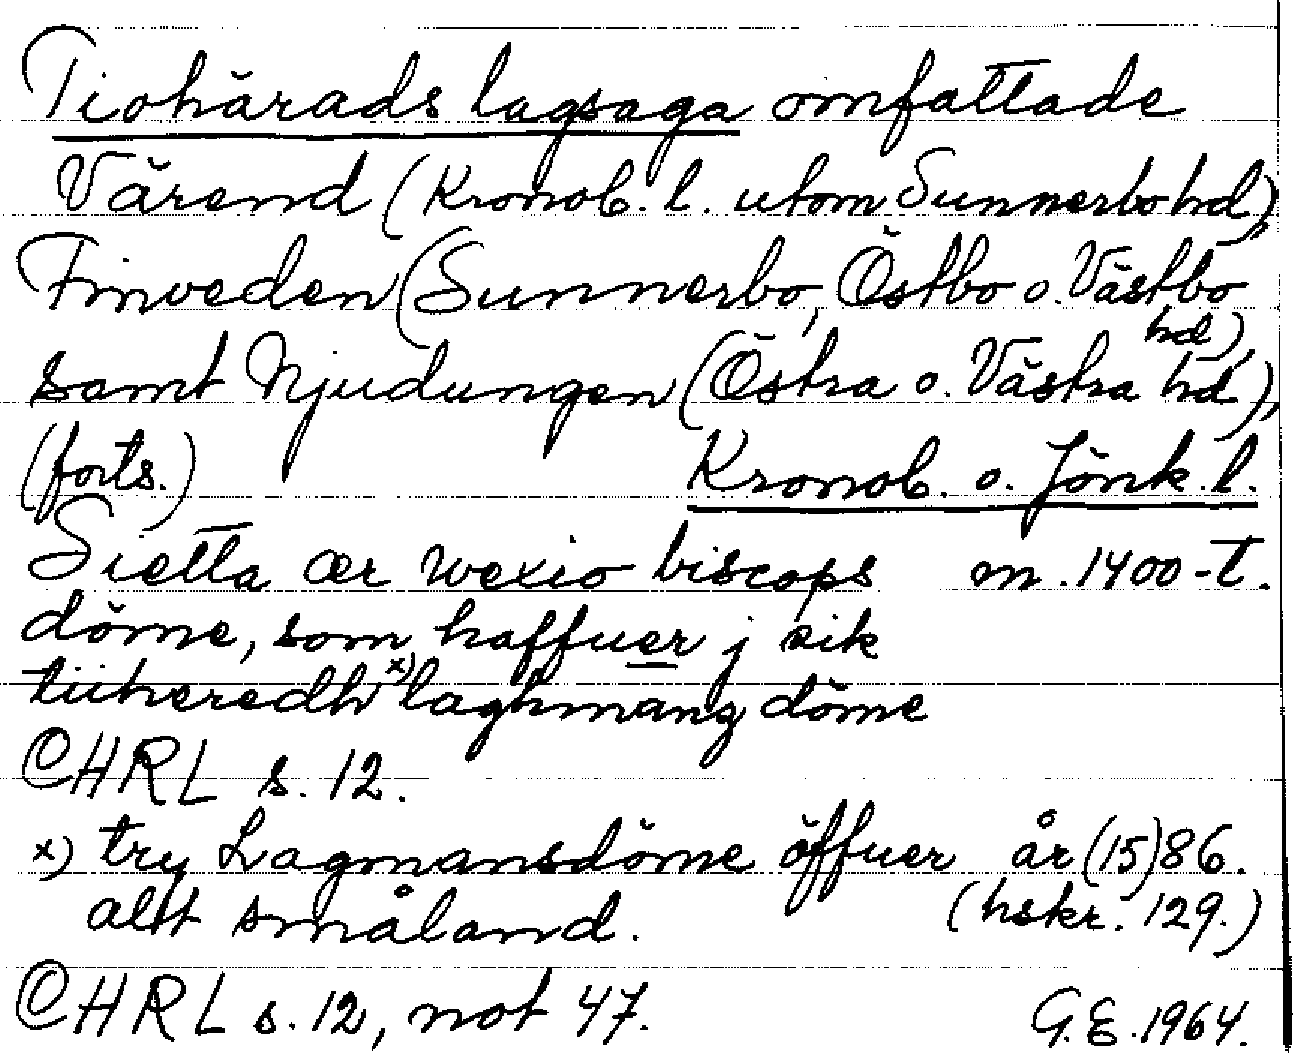 Tiohärads lagsaga omfattade
Värend (Kronob. l. utom Sunnerbo hd),
Finveden (Sunnerbo, Östbo o. Västbo
hd),
samt Njudungen (Östra o. Västra hd),
(forts.) Kronob. o. Jönk. l.
Sietta ær wexio biscops m. 1400-t.
döme, som haffuer j sik
tiiheredh x) laghmanz döme
CHRL s. 12.
x) try Lagmansdöme öffuer år (15)86.
alt småland. (hskr. 129.)
CHRL s. 12, not 47. G.E. 1964.